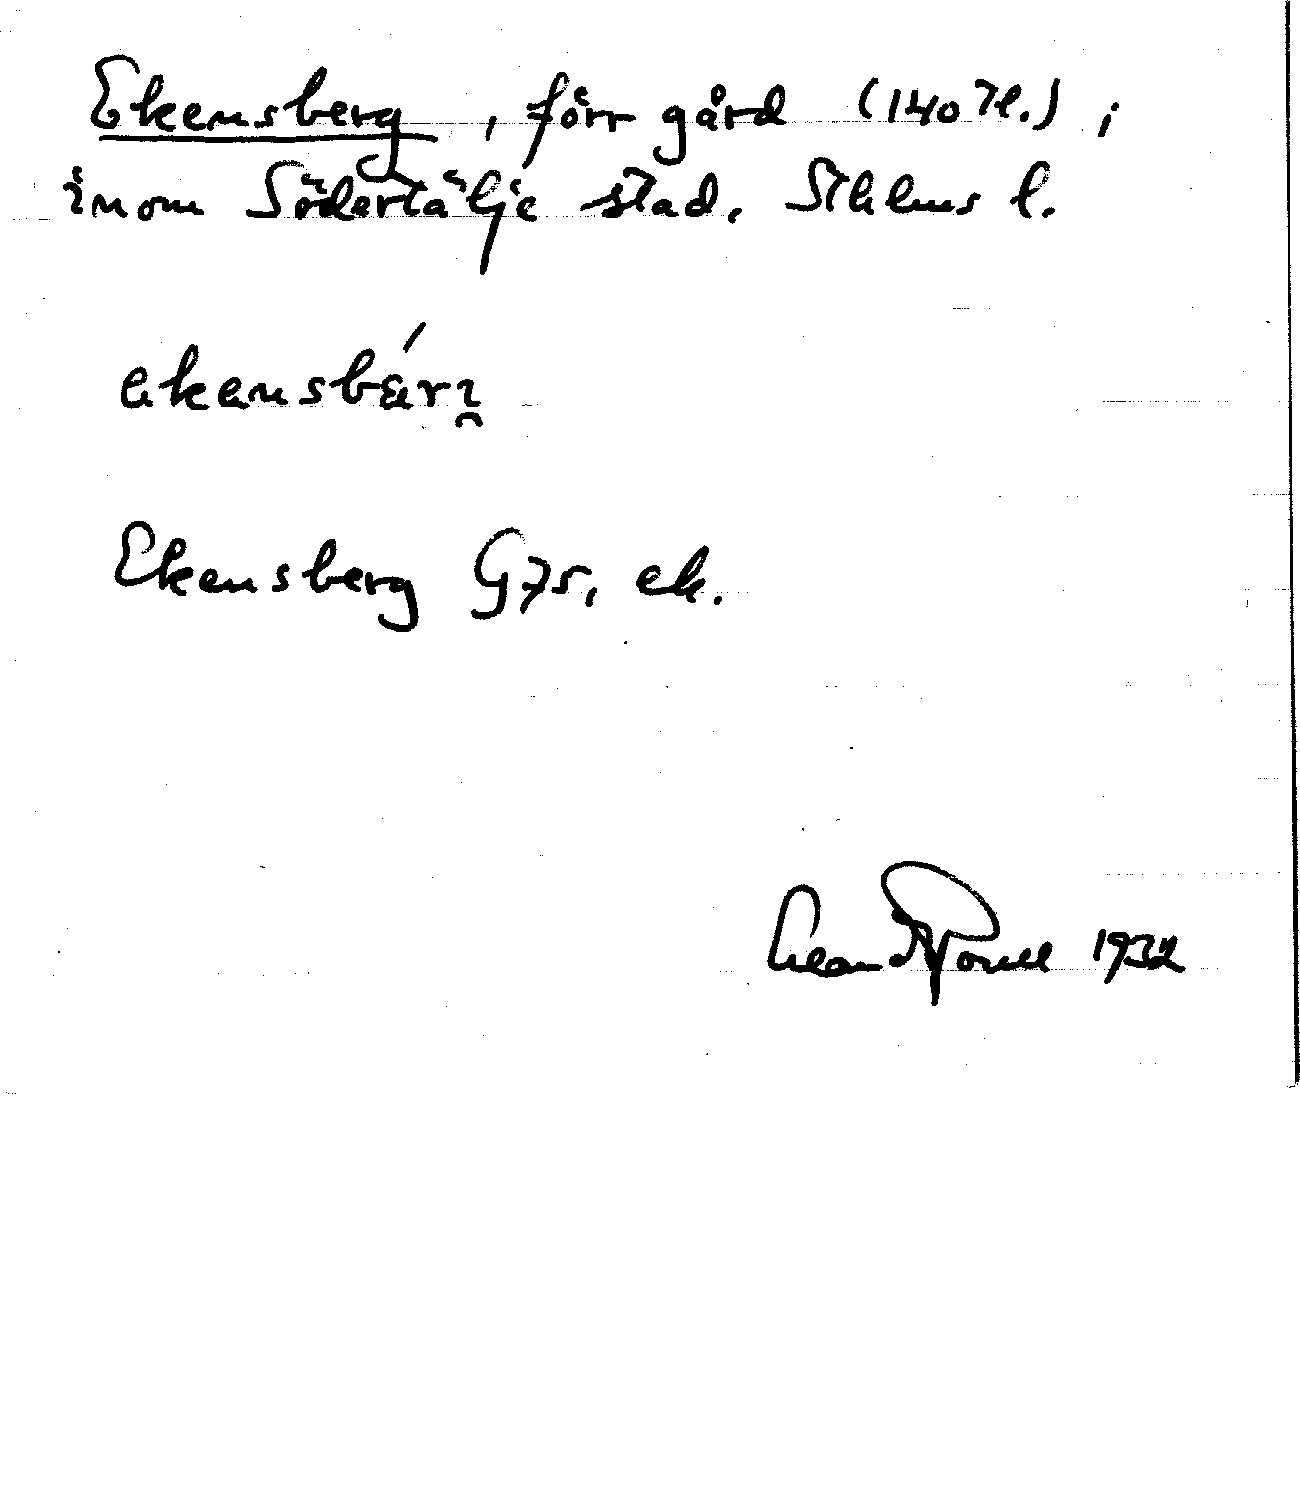 Ekensberg, förr gård (140 71.) i
inom Södertälje stad. Sthlms l.
ekensbǽrı̯
Ekensberg G75, ek.
1932